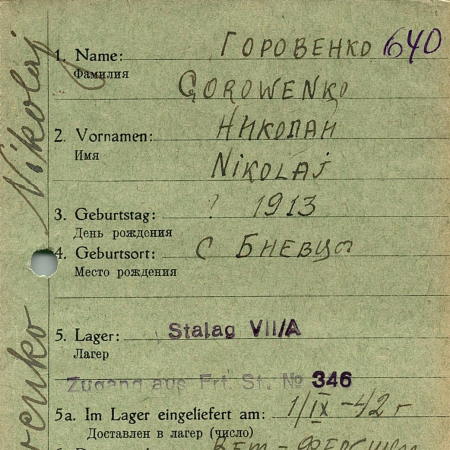 1. Name: ГОРОВЕНКО 640
Фамилия
GOROWENKO
2. Vornamen: НИКОЛАЙ
Имя
NIKOLAJ
3. Geburtstag: ? 1913
День рождения
4. Geburtsort: С БНЕВЦЫ
Место рождения
5. Lager: Stalag VII/A
Лагерь
Zugang aus Frt. St. № 346
5a. Im Lager eingeliefert am: 1/IX - 42 г
Доставлен в лагерь (число)
Nikolaj